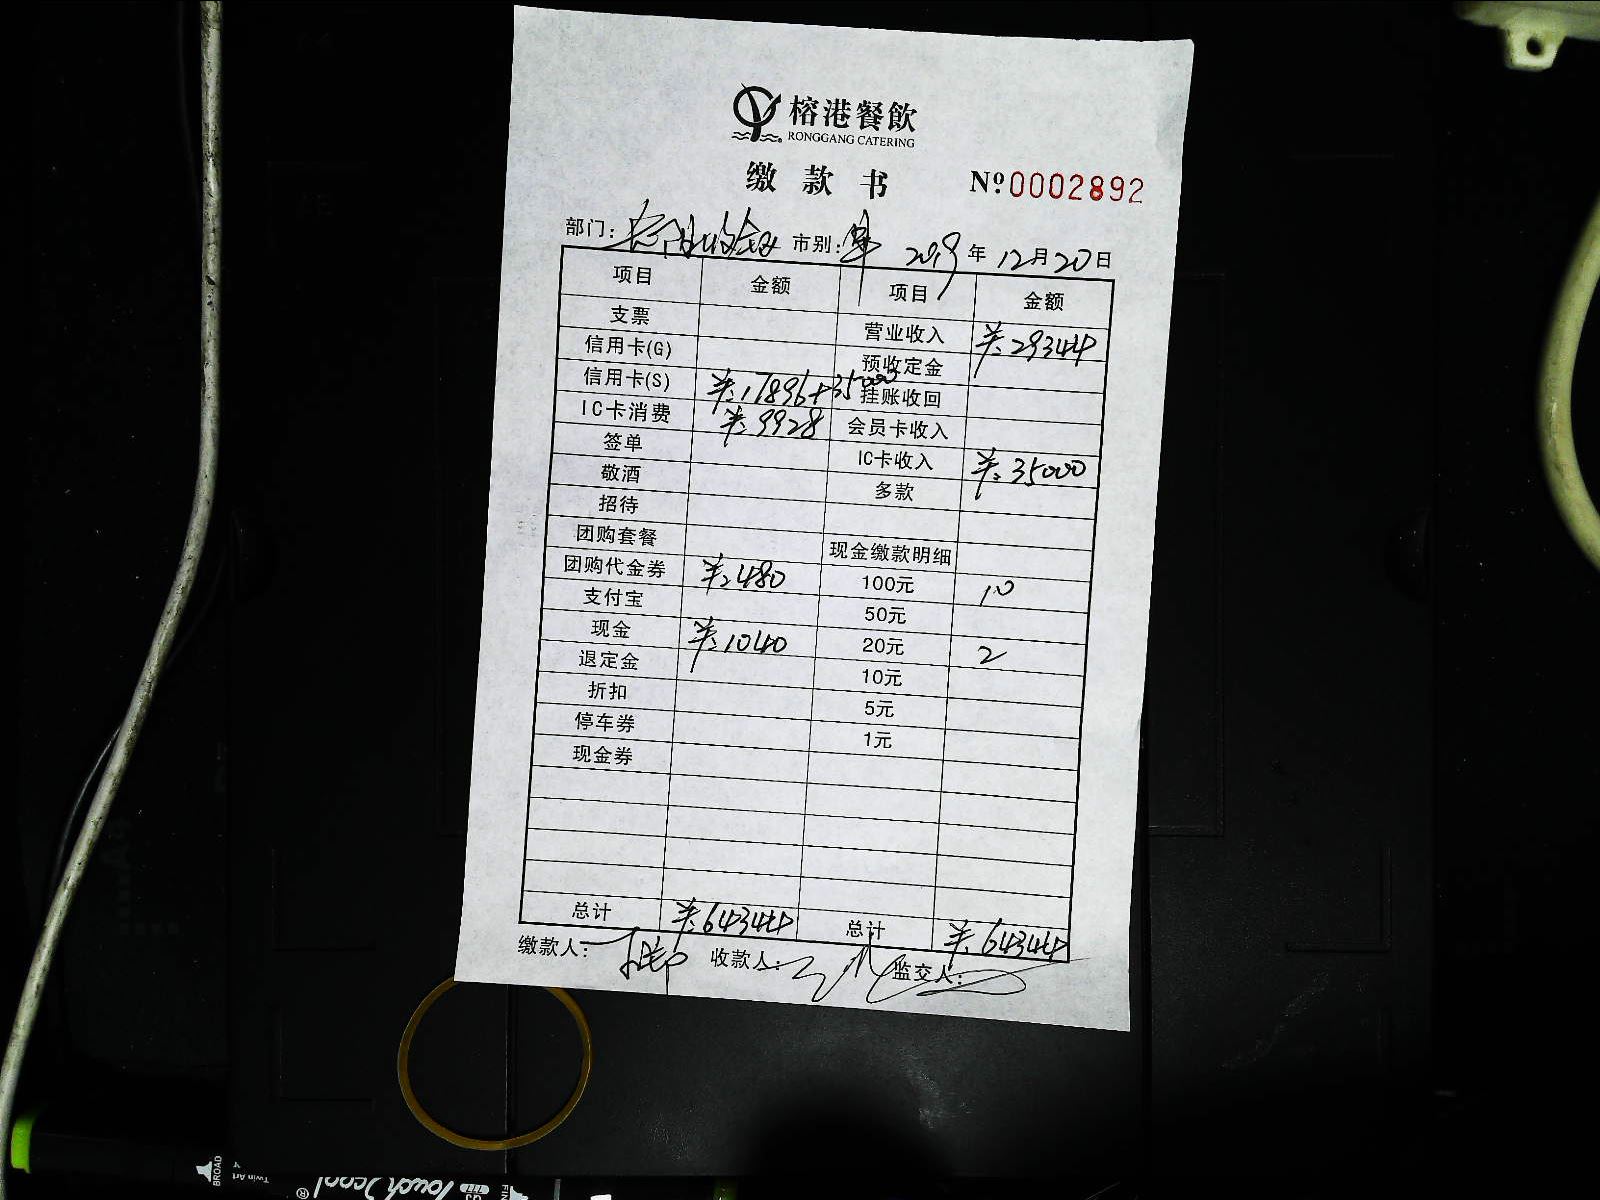 榕港餐飲
RONGGANG CATERING
缴款书 Nº0002892
部门: 市别: 2019年12月20日
项目 金额 项目 金额
支票 营业收入 ¥:29344
信用卡(G) 预收定金
信用卡(S) ¥:17896+35000 挂账收回
IC卡消费 ¥:9928 会员卡收入
签单 IC卡收入 ¥:35000
敬酒 多款
招待
团购套餐 现金缴款明细
团购代金券 ¥:480 100元 10
支付宝 50元
现金 ¥:1040 20元 2
退定金 10元
折扣 5元
停车券 1元
现金券
总计 ¥:64344 总计 ¥:64344
缴款人: 收款人: 监交人:
BROAD
Twin
Touch